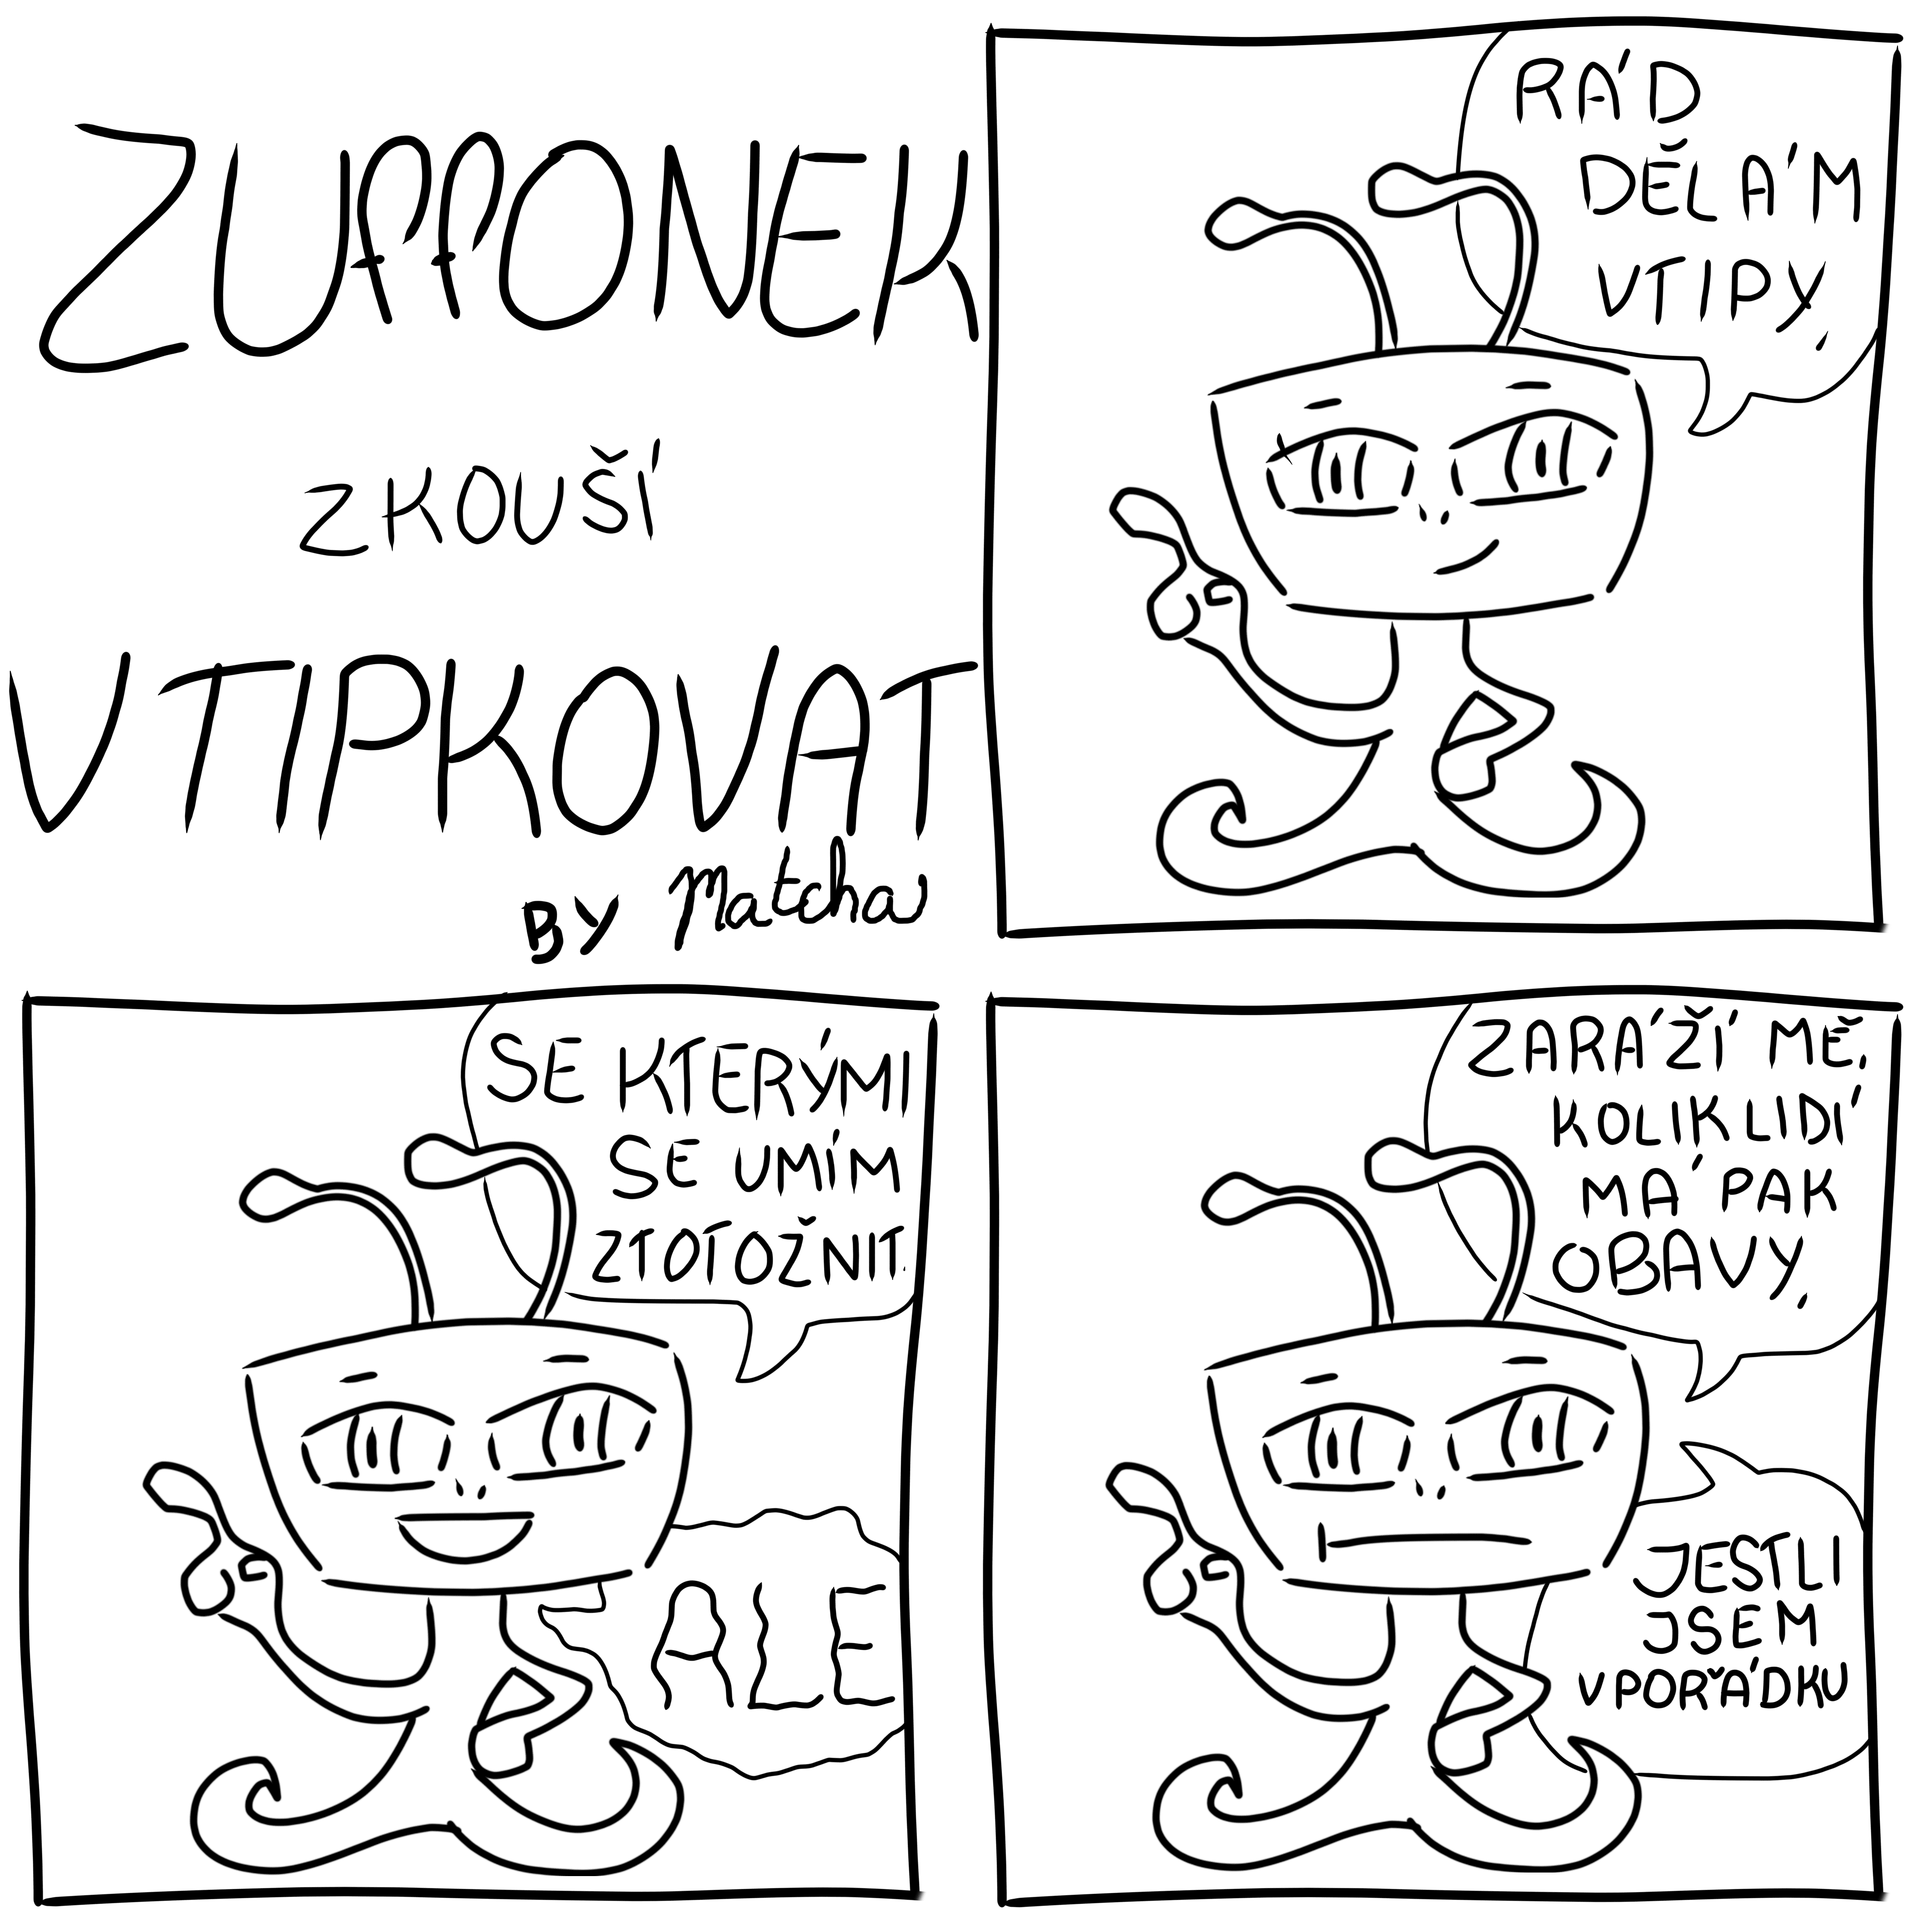 ZUPPONEK
ZKOUŠÍ
VTIPKOVAT
BY Matcha
RÁD
DĚLÁM
VTIPY,
SE KTERÝMI
SE UMÍM
ZTOTOŽNIT.
ALE
ZARÁŽÍ MĚ,
KOLIK LIDÍ
MÁ PAK
OBAVY,
JESTLI
JSEM
V POŘÁDKU